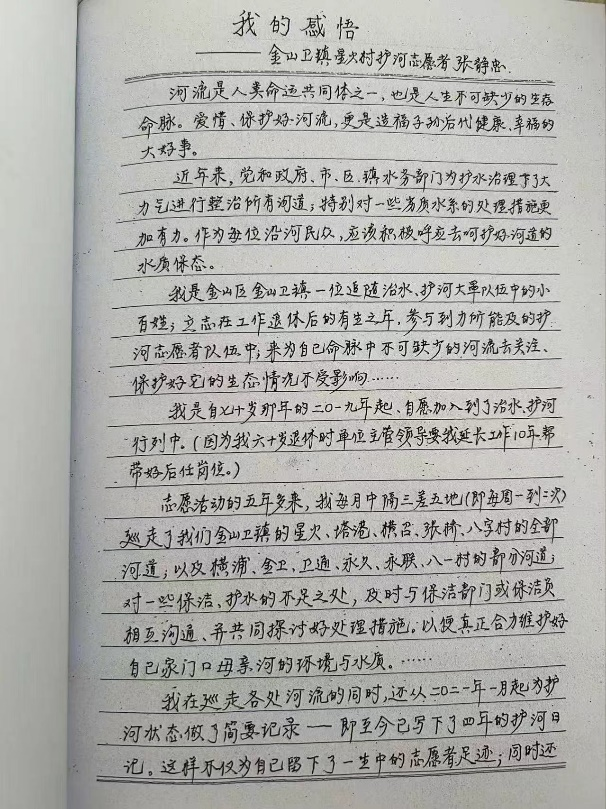 我的感悟
——金山卫镇星火村护河志愿者 张静忠
河流是人类命运共同体之一，也是人生不可缺少的生态
命脉。爱惜、保护好河流，更是造福子孙后代健康、幸福的
大好事。
近年来，党和政府、市、区、镇水务部门为护水治理下了大
力气进行整治所有河道；特别对一些劣质水系的处理措施更
加有力。作为每位沿河民众，应该积极呼应去呵护好河道的
水质保态。
我是金山区金山卫镇一位追随治水、护河大军队伍中的小
百姓；立志在工作退休后的有生之年，参与到力所能及的护
河志愿者队伍中；来为自己命脉中不可缺少的河流去关注、
保护好它的生态情况不受影响……
我是自七十岁那年的二〇一九年起、自愿加入到了治水、护河
行列中。（因为我六十岁退休时单位主管领导要我延长工作10年帮
带好后任岗位。）
志愿活动的五年多来，我每月中隔三差五地（即每周一到二次）
巡走了我们金山卫镇的星火、塔港、横召、张桥、八字村的全部
河道；以及横浦、金卫、卫通、永久、永联、八一村的部分河道；
对一些保洁、护水的不足之处，及时与保洁部门或保洁员
相互沟通、并共同探讨好处理措施。以便真正合力维护好
自己家门口母亲河的环境与水质。……
我在巡走各处河流的同时，还从二〇二一年一月起为护
河状态做了简要记录——即至今已写下了四年的护河日
记。这样不仅为自己留下了一生中的志愿者足迹；同时还